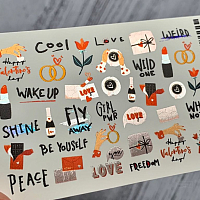 Cool Love
WEIRD
Happy
Valentine's
Day!
WILD
ONE
WAKE UP
GIRL
PWR
Happy
Valentine's
Day!
LOVE
SHINE
FLY
AWAY
BE YOURSELF
LOVE
LOVE
PEACE
FREEDOM